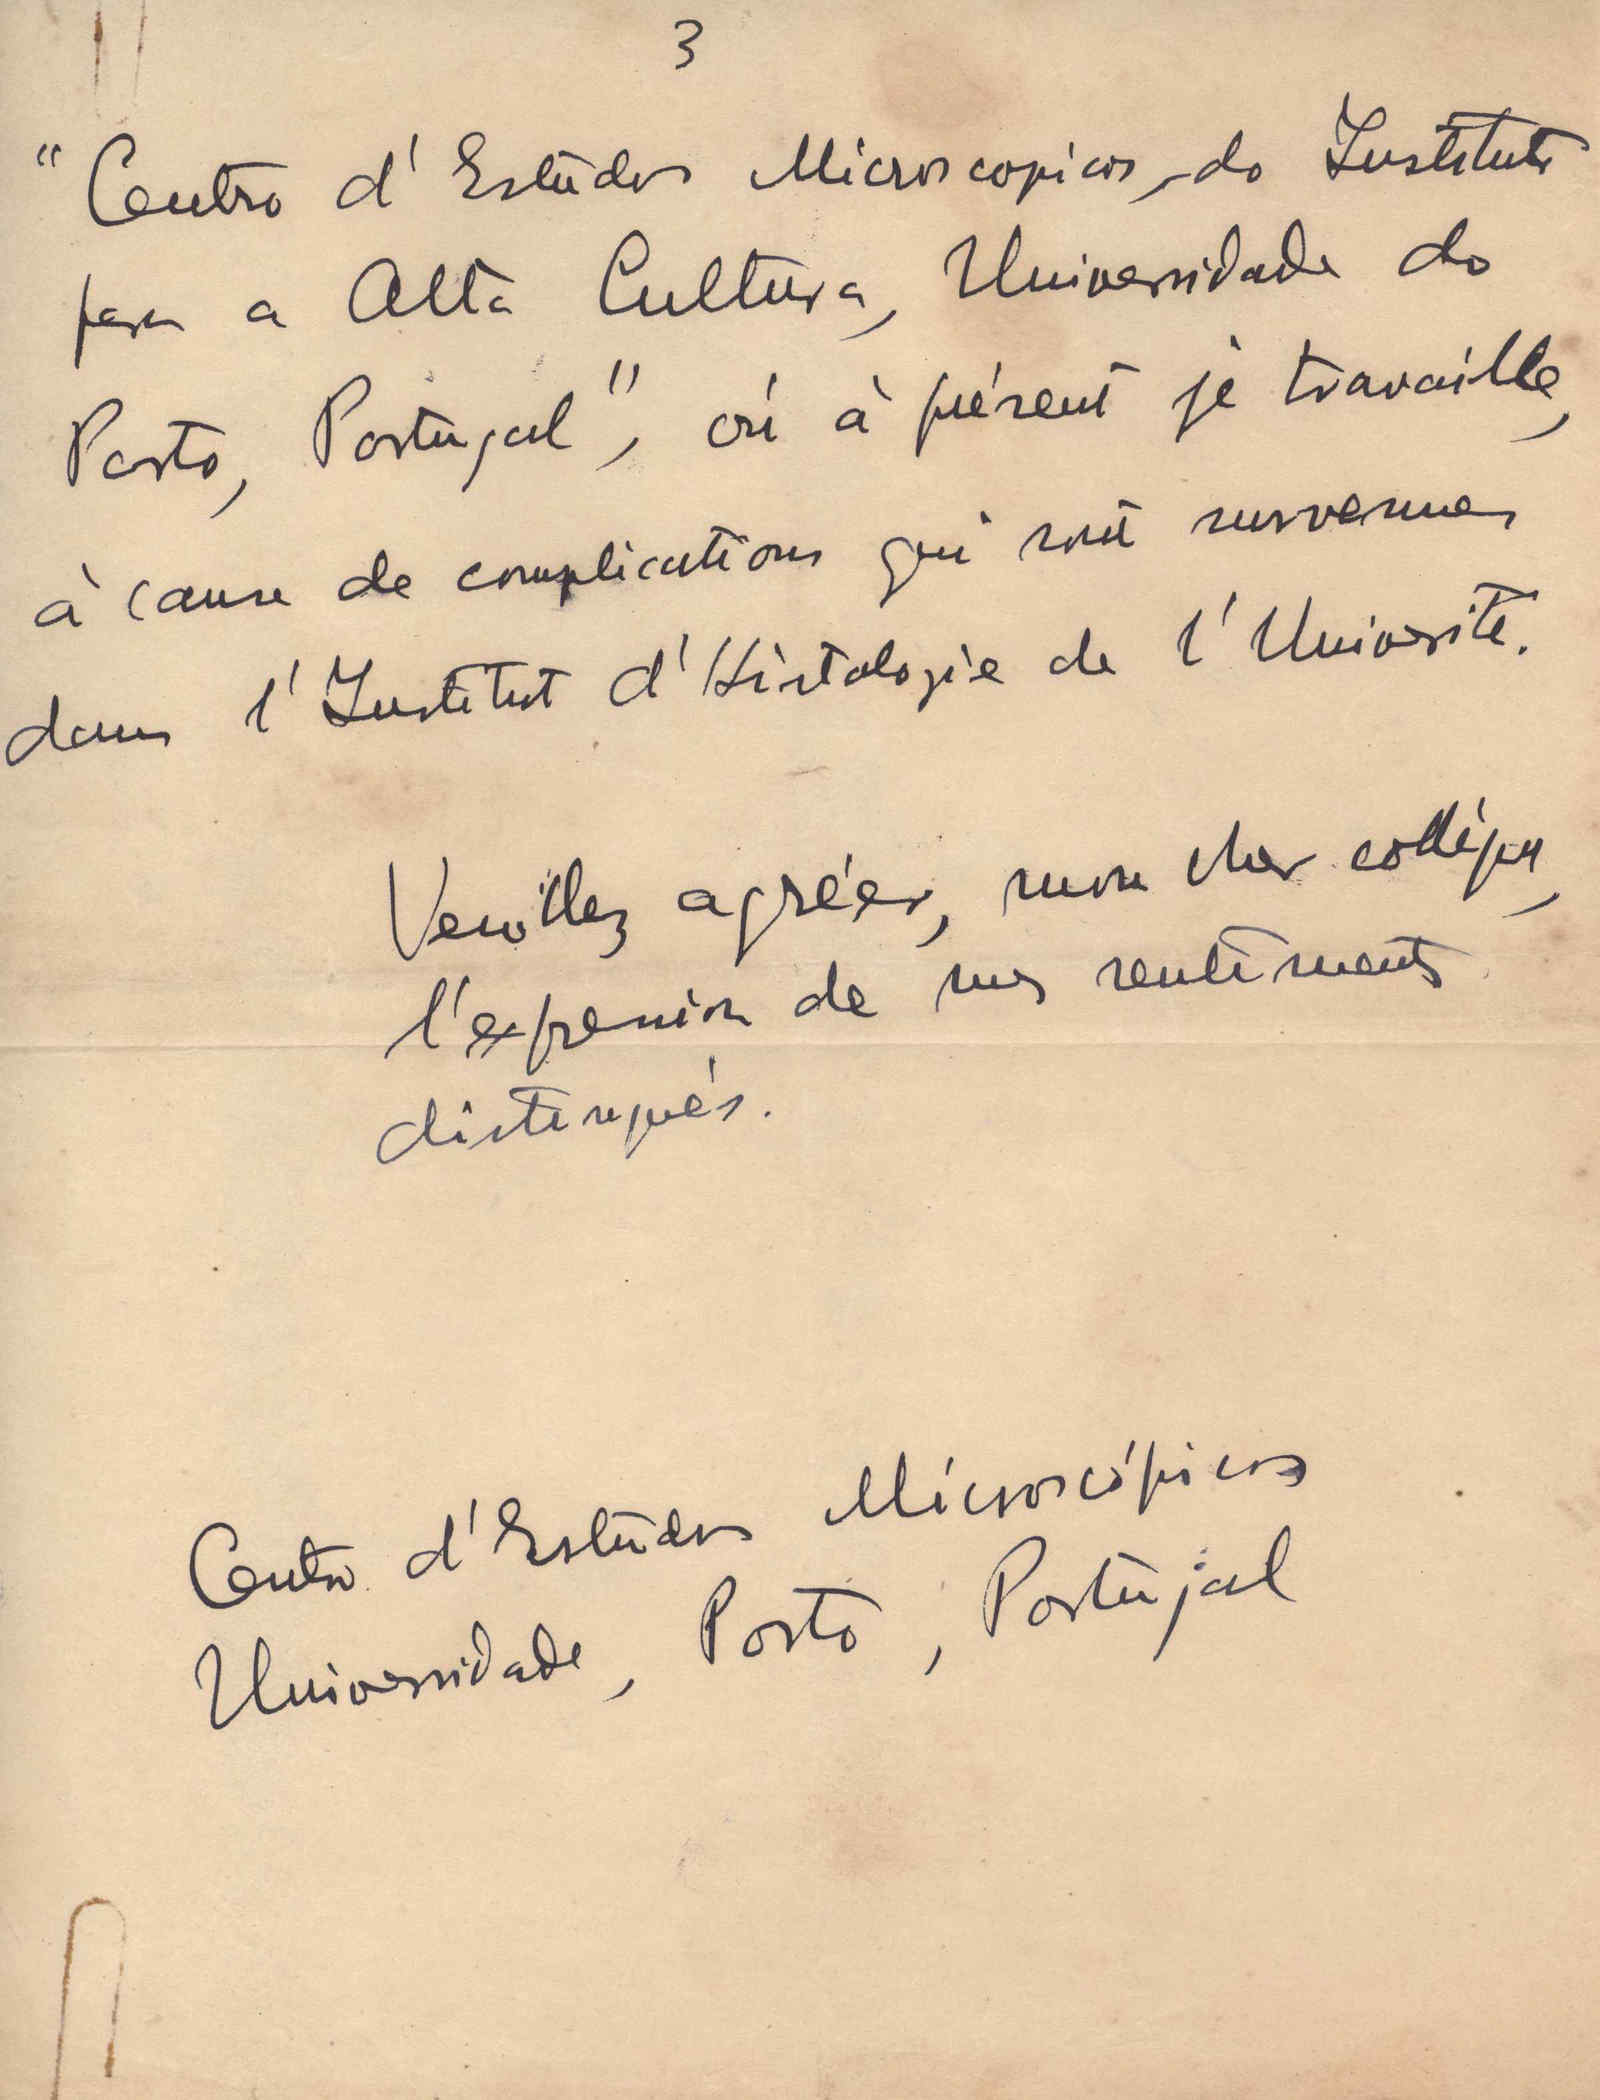 3
"Centro d'Estudos Microscopicos, do Instituto
para a Alta Cultura, Universidade do
Porto, Portugal", où à présent je travaille,
à cause de complications qui sont survenues
dans l'Institut d'Histologie de l'Université.
Veuillez agréer, mon cher collègue,
l'expression de mes sentiments
distingués.
Centro d'Estudos Microscópicos
Universidade, Porto, Portugal